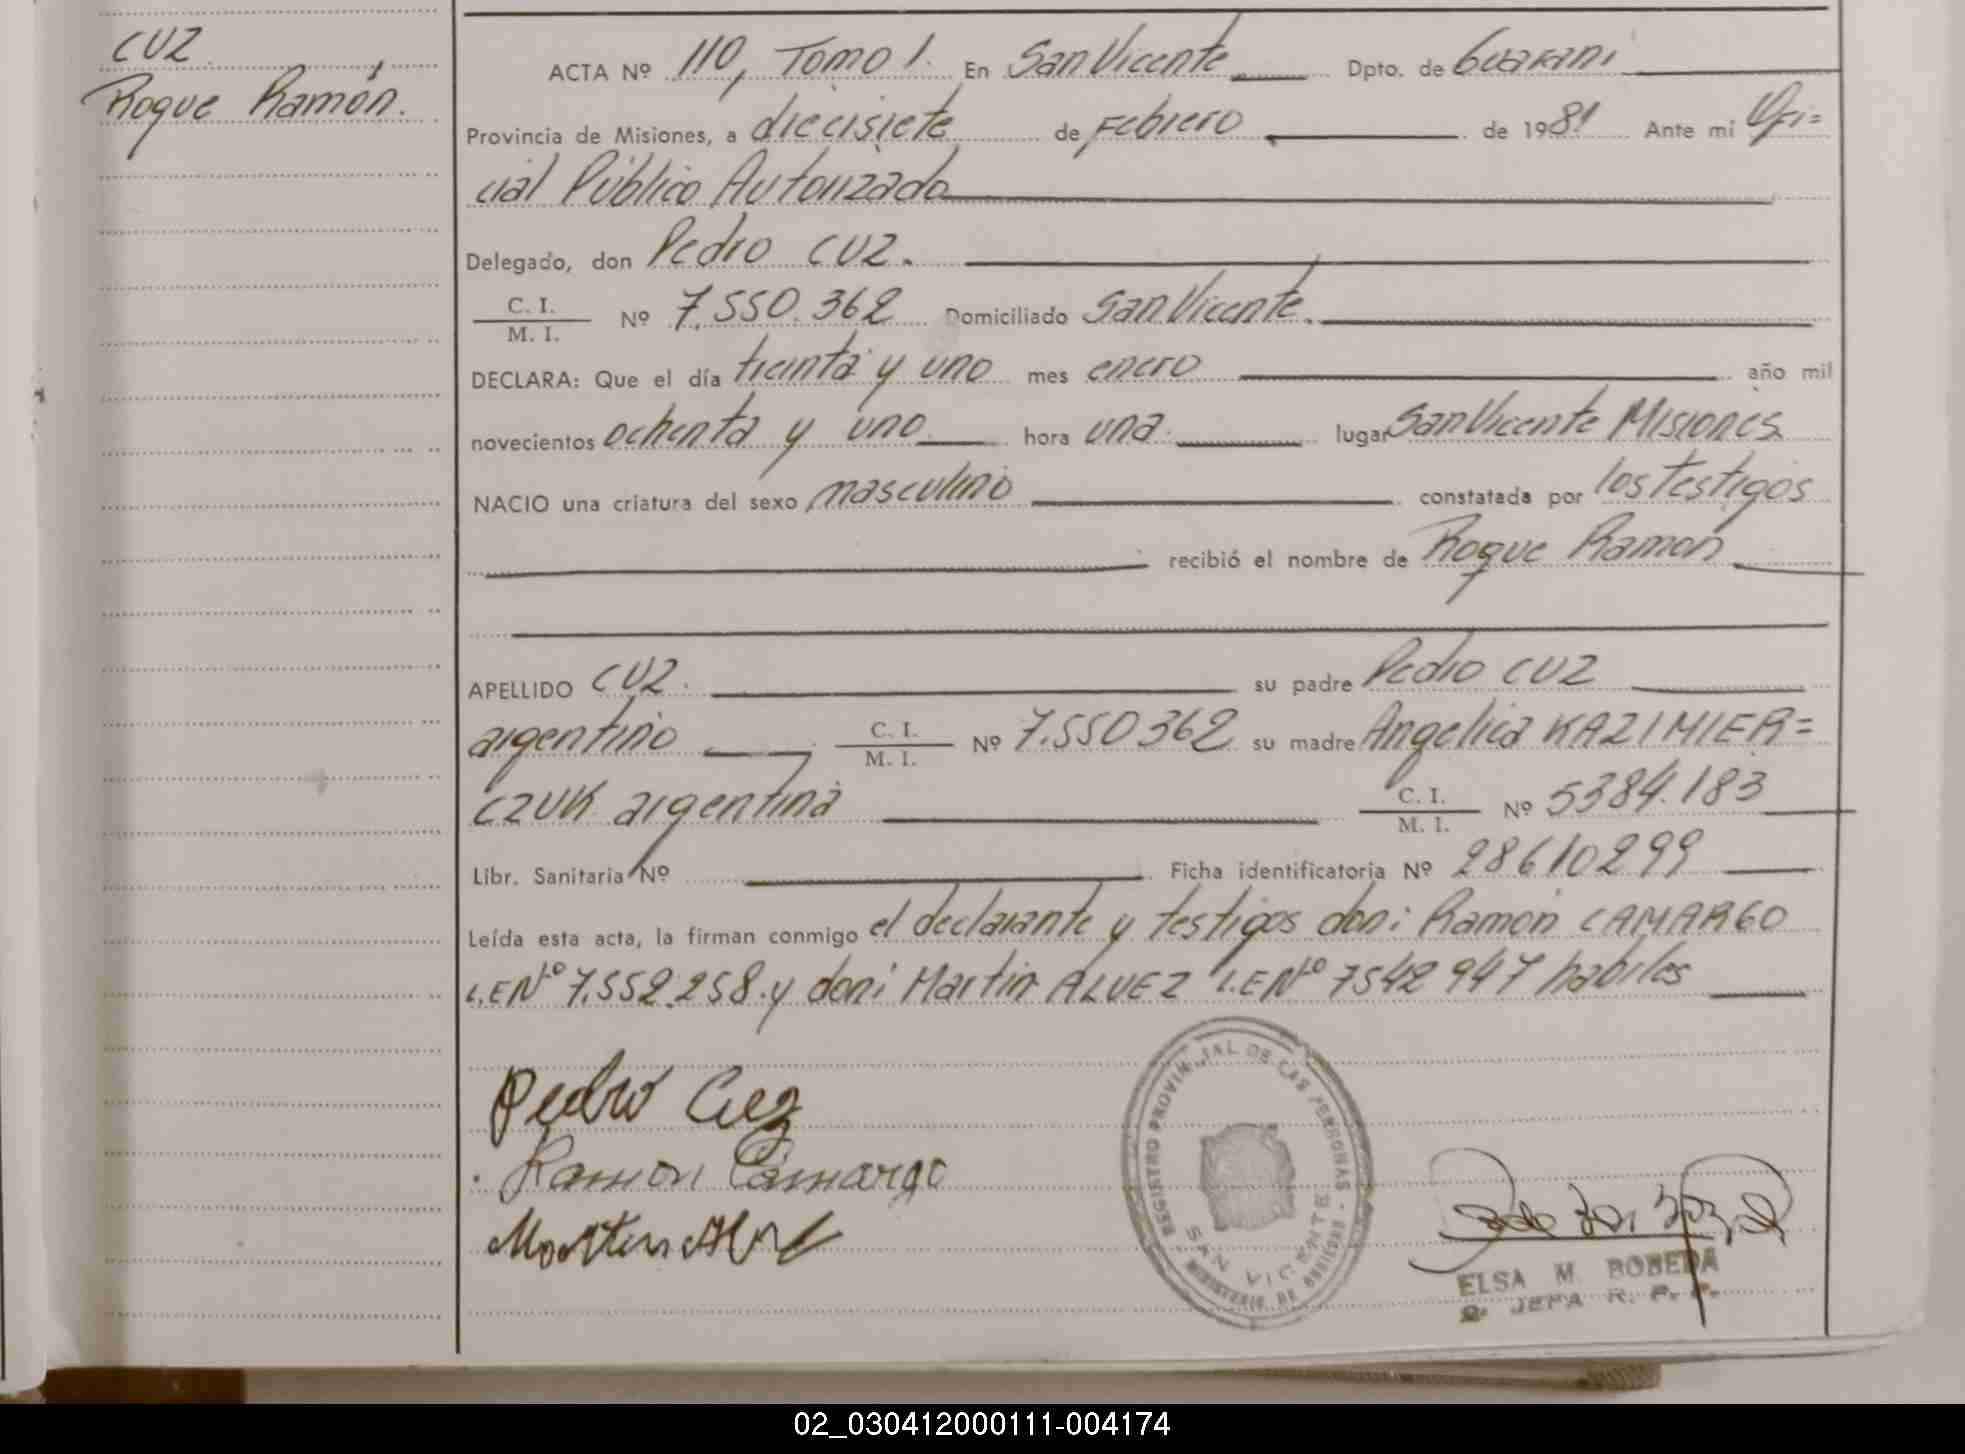 CUZ
Roque Ramón.
ACTA Nº 110, Tomo 1. En San Vicente Dpto. de Guaraní
Provincia de Misiones, a diecisiete de Febrero de 1981 Ante mí Ofi=
cial Público Autorizado
Delegado, don Pedro CUZ.
C. I.
M. I. Nº 7.550.362 Domiciliado San Vicente.
DECLARA: Que el día treinta y uno mes enero año mil
novecientos ochenta y uno hora una. lugar San Vicente Misiones
NACIO una criatura del sexo masculino constatada por los Testigos
recibió el nombre de Roque Ramón
APELLIDO CUZ. su padre Pedro CUZ
argentino C. I.
M. I. Nº 7.550362 su madre Angelica KAZIMIER=
CZUK argentina C. I.
M. I. Nº 5384.183
Libr. Sanitaria Nº Ficha identificatoria Nº 28610299
Leída esta acta, la firman conmigo el declarante y testigos don: Ramón CAMARGO
L.E Nº 7.552.258. y don: Martin ALVEZ L.E Nº 7542947 habiles
Pedro Cuz
Ramon Camargo
Martin
REGISTRO PROVINCIAL DE LAS PERSONAS
SAN VICENTE
MINISTERIO DE
ELSA M. BOBEDA
JEFA R. P. P.
02_030412000111-004174